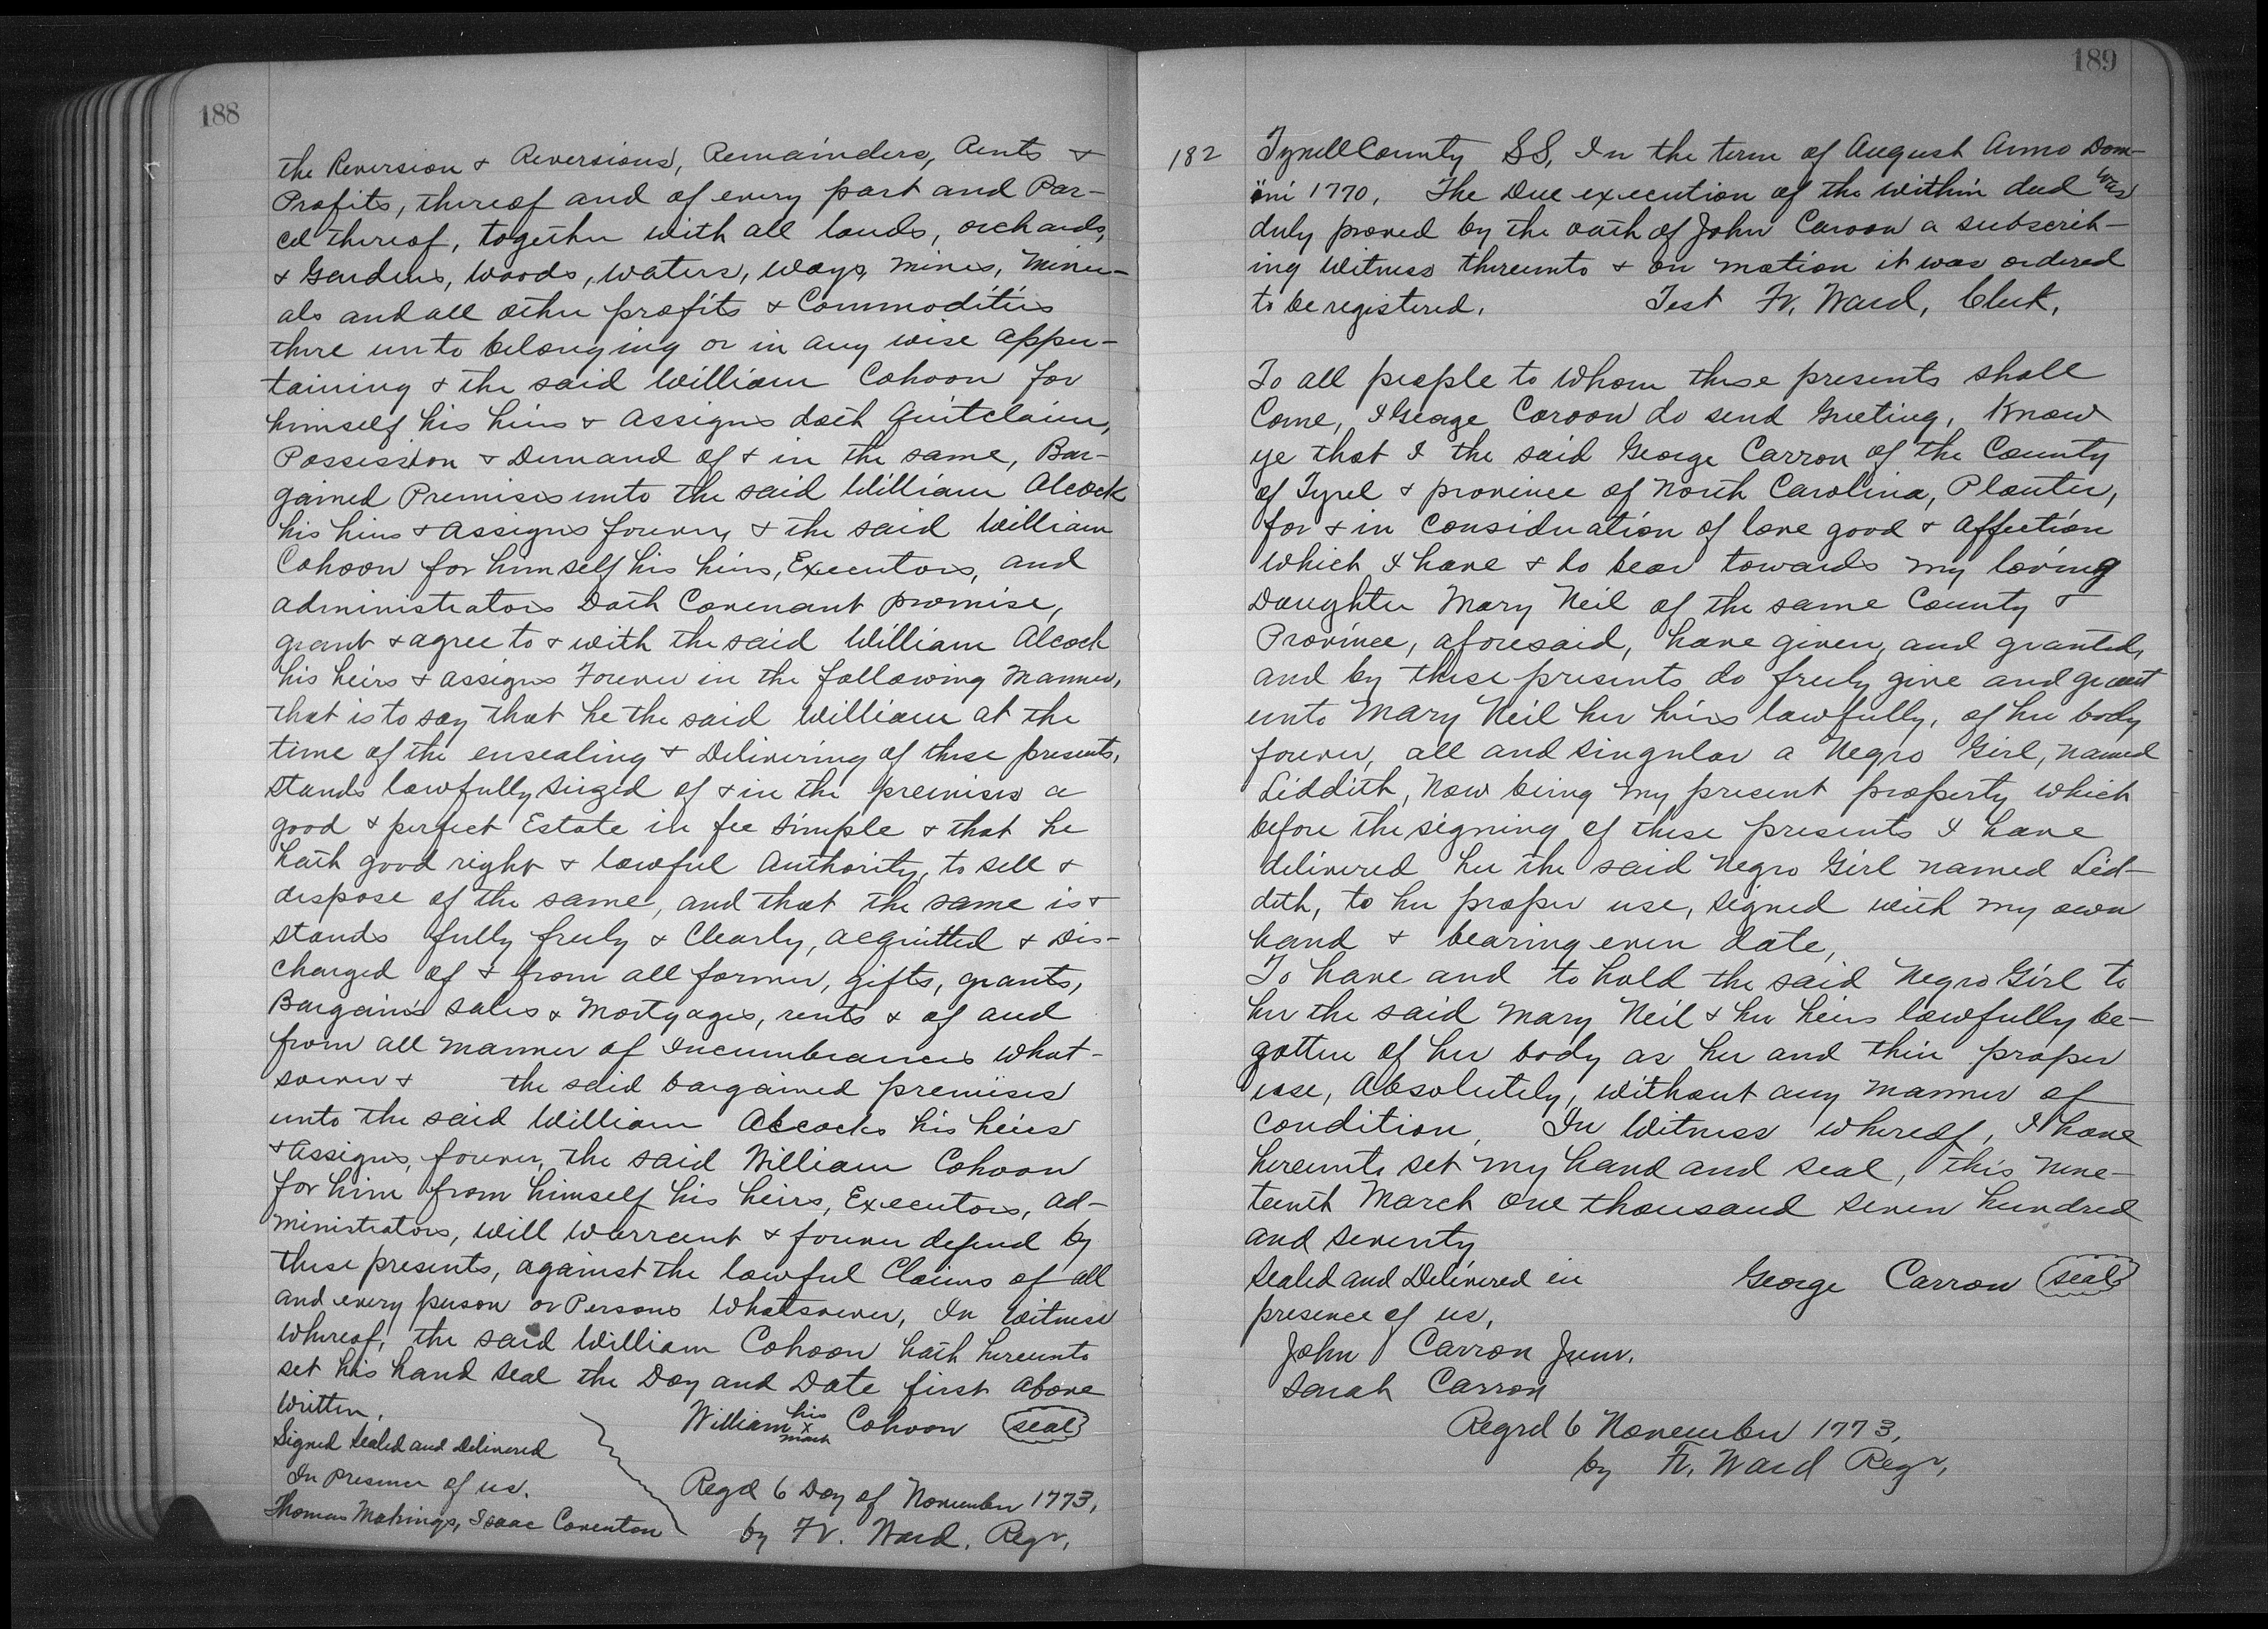 188
the Reversion & Reversions, Remainders, Rents &
Profits, thereof and of every part and Par-
cel thereof, together with all lands, orchards,
& Gardens, Woods, waters, ways, mines, miner-
als and all other profits & Commodities
there unto belonging or in any wise apper-
taining & the said William Cohoon for
himself his heirs & assigns doth Quitclaim,
Possession & Demand of & in the same, Bar-
gained Premises unto the said William Alcock
his heirs & assigns forever, & the said William
Cohoon for himself his heirs, Executors, and
administrators Doth Covenant promise,
grant & agree to & with the said William Alcock
his heirs & assigns Forever in the following manner,
that is to say that he the said William at the
time of the ensealing & Delivering of these presents,
stands lawfully siezed of & in the premises a
good & perfect Estate in fee simple & that he
hath good right & lawful Authority, to sell &
dispose of the same, and that the same is &
stands fully freely & Clearly, acquitted & Dis-
charged of & from all former, gifts, grants,
Bargains sales & Mortgages, rents & of and
from all manner of Incumbrances what-
soever & the said bargained premises
unto the said William Alcocks his heirs
& Assigns, forever, the said William Cohoon
for him from himself his heirs, Executors, ad-
ministrators, will Warrent & forever defend by
these presents, against the lawful Claims of all
and every person or Persons Whatsoever, In Witness
Whereof, the said William Cohoon hath hereunto
set his hand seal the Day and Date first above
Written.
William his x mark Cohoon seal
Signed sealed and delivered
In presence of us.
Thomas Makings, Isaac Coventon
Regd 6 Day of November 1773,
by Fr. Ward, Regr,
189
182 Tyrell County SS, In the term of August Anno Dom-
ini 1770, The Due execution of the within deed was
duly proved by the oath of John Caroon a subscrib-
ing Witness thereunto & on motion it was ordered
to be registered. Test Fr. Ward, Clerk,
To all people to Whom these presents shall
Come, I George Caroon do send Greeting, Know
ye that I the said George Carron of the County
of Tyrel & province of North Carolina, Planter,
for & in Consideration of love good & affection
which I have & do bear towards my loving
Daughter Mary Neil of the same County &
Province, aforesaid, have given, and granted,
and by these presents do freely give and grant
unto Mary Neil her heirs lawfully, of her body
forever, all and singular a Negro Girl, named
Liddith, Now being my present property which
before the signing of these presents I have
delivered her the said Negro Girl named Lid-
dith, to her proper use, signed with my own
hand & bearing even date,
To have and to hold the said Negro Girl to
her the said Mary Neil & her heirs lawfully be-
gotten of her body as her and their proper
use, Absolutely, without any manner of
Condition, In Witness whereof, I have
hereunto set my hand and seal, this nine-
teenth March one thousand seven hundred
and seventy
Sealed and Delivered in George Carron seal
presence of us,
John Carron Junr.
Sarah Carron
Regrd 6 November 1773,
by Fr. Ward Regr,